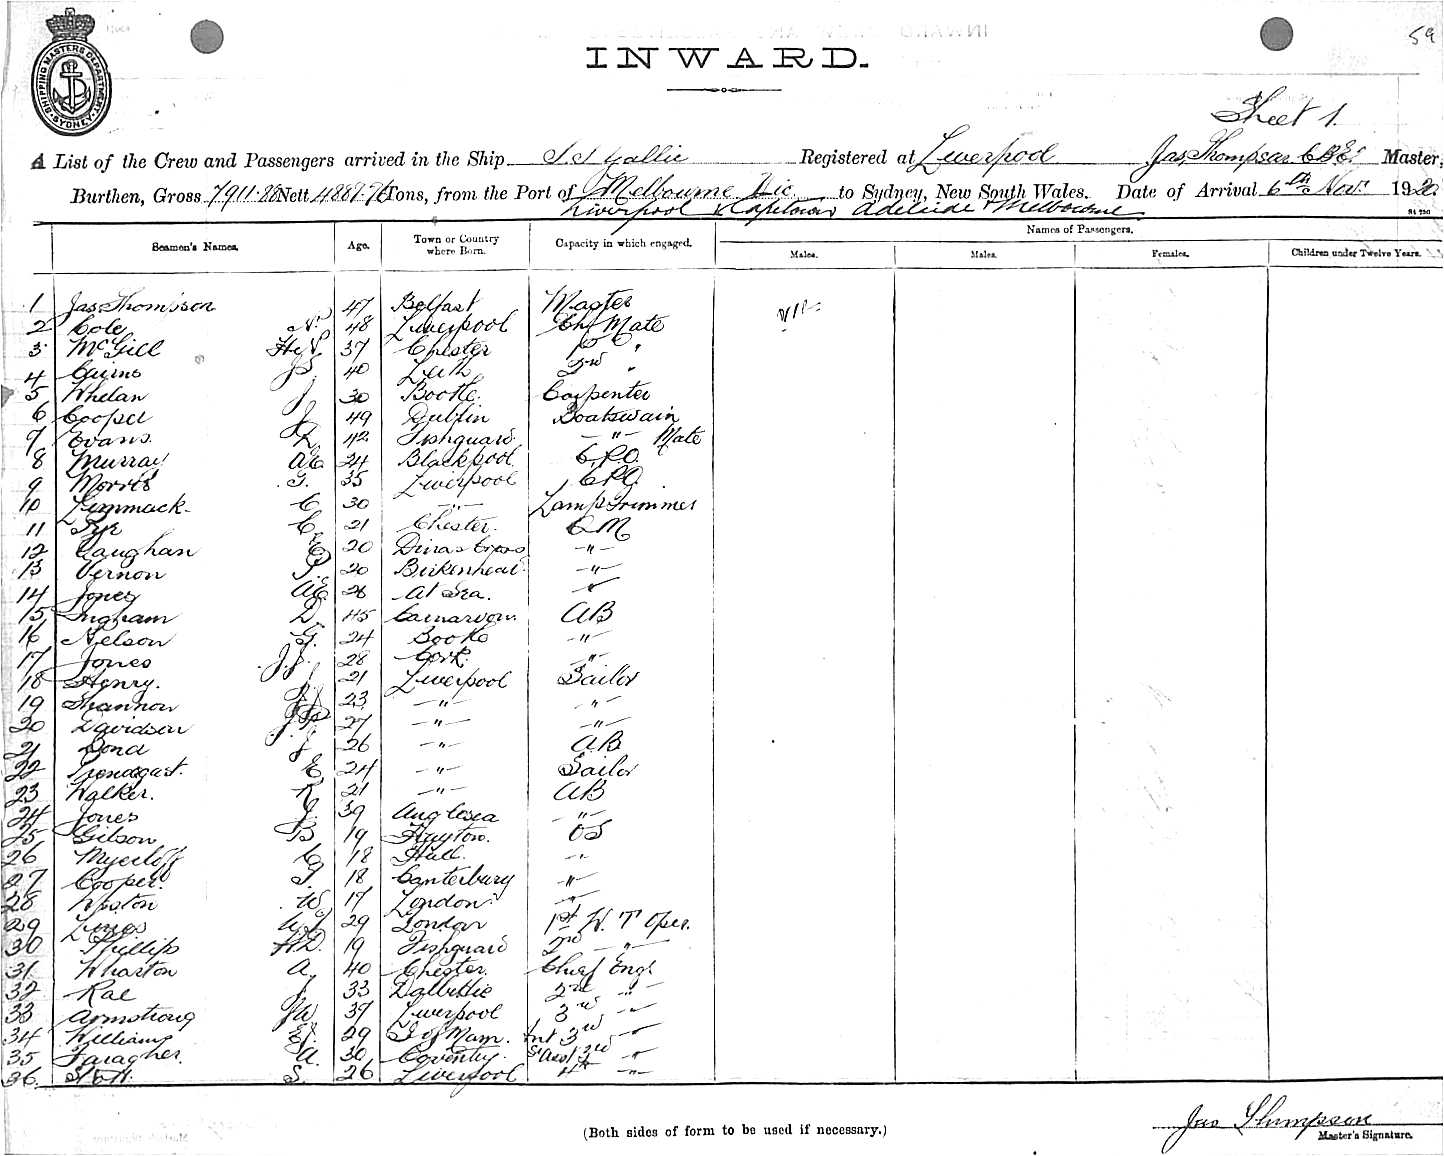 59
INWARD.
SHIPPING MASTERS DEPARTMENT SYDNEY
Sheet 1.
A List of the Crew and Passengers arrived in the Ship Registered at Liverpool Jas Thompson C.B.E. Master,
Burthen, Gross 7911.28 Nett 4887.76 Tons, from the Port of Melbourne Vic to Sydney, New South Wales. Date of Arrival 6th Nov. 1920
Liverpool Capetown Adelaide & Melbourne
Seamen's Names. Age. Town or Country where Born. Capacity in which engaged. Names of Passengers.
Males. Males. Females. Children under Twelve Years.
1 Jas Thompson 47 Belfast Master
2 Cole 48 Liverpool Ch. Mate
3 McGill 37 Chester "
4 Cairns 40 Leith 2nd "
5 Whelan J 30 Bootle. Carpenter
6 Cooper J 49 Dublin Boatswain
7 Evans. 42 Fishguard - " - Mate
8 Murray 24 Blackpool
9 Morris G. 35 Liverpool
10 C 30 - " - Lamp Trimmer
11 C. 21 Chester. QM
12 Vaughan 20 Dinas Cross - " -
13 Vernon 20 Birkenhead - " -
14 Jones 28 At Sea. "
15 Ingham D. 45 Carnarvon. AB
16 Nelson G. 24 Bootle - " -
17 Jones J.J. 28 Cork. "
18 Henry. 21 Liverpool Sailor
19 Shannon 23 - " - - " -
20 Davidson 27 - " - - " -
21 Bond J 26 - " - AB
22 E 24 - " - Sailor
23 Walker. R 21 - " - AB
24 Jones J. 39 Anglesea - " -
25 Gilson B 19 Huyton. OS
26 C 18 Hull. - " -
27 Cooper. 18 Canterbury - " -
28 Weston W 17 London "
29 29 London 1st W. T Oper.
30 Phillips H.D. 19 Fishguard 2nd - " -
31 Wharton A, 40 Chester. Chief Engr
32 Rae J 33 Dalbettie 2nd - " -
33 Armstrong JW 37 Liverpool 3rd - " -
34 Williams 29 I of Mam. Int 3rd "
35 Faragher. A. 30 Coventry. 3rd "
36. Stott S. 26 Liverpool 4th - " -
(Both sides of form to be used if necessary.)
Jas Thompson
Master's Signature.